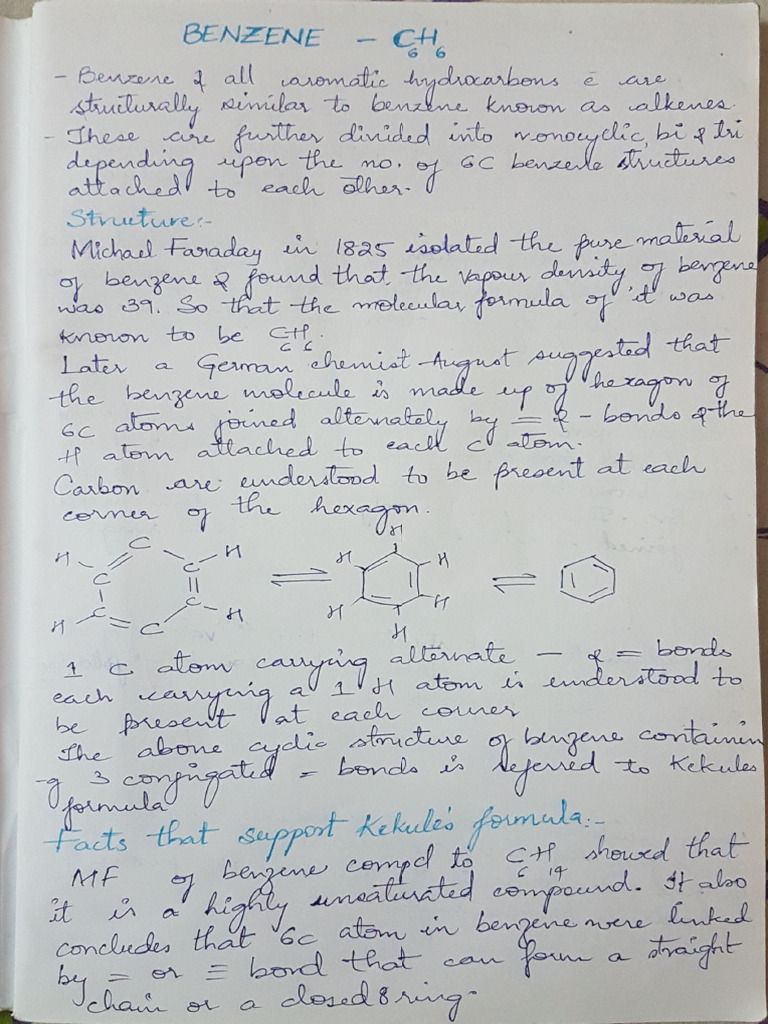 BENZENE - C6H6
- Benzene & all aromatic hydrocarbons c̄ are
structurally similar to benzene known as alkenes.
- These are further divided into monocyclic, bi & tri
depending upon the no. of 6C benzene structures
attached to each other.
Structure:-
Michael Faraday in 1825 isolated the pure material
of benzene & found that the vapour density of benzene
was 39. So that the molecular formula of it was
known to be C6H6.
Later a German chemist August suggested that
the benzene molecule is made up of hexagon of
6C atoms joined alternately by = & - bonds & the
H atom attached to each C atom.
Carbon are understood to be present at each
corner of the hexagon.
H C C H C C H C C H ⇌ H H H H H H ⇌
1 C atom carrying alternate - & = bonds
each carrying a 1 H atom is understood to
be present at each corner
The above cyclic structure of benzene containin
-g 3 conjugated = bonds is referred to Kekules
formula
Facts that support Kekule's formula:-
MF of benzene compd to C6H14 showed that
it is a highly unsaturated compound. It also
concludes that 6C atom in benzene were linked
by = or ≡ bond that can form a straight
chain or a closed ring.